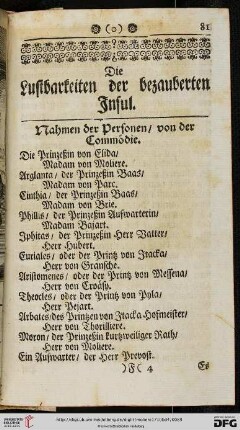 (o) 81
Die
Lustbarkeiten der bezauberten
Insul.
Nahmen der Personen/ von der
Commödie.
Die Prinzeßin von Elida/
Madam von Moliere.
Arglanta, der Prinzeßin Baas/
Madam von Parc.
Cinthia, der Prinzeßin Baas/
Madam von Brie.
Phillis, der Prinzeßin Aufwarterin/
Madam Bajart.
Iphitas, der Prinzeßin Herr Vatter/
Herr Hubert.
Euriales, oder der Printz von Itacka/
Herr von Gransche.
Aristomenes, oder der Printz von Messena/
Herr von Croasy.
Theocles, oder der Printz von Pyla/
Herr Bejart.
Arbates/des Printzen von Itacka Hofmeister/
Herr von Thorilliere.
Moron/ der Prinzeßin kurtzweiliger Rath/
Herr von Moliere.
Ein Aufwarter/ der Herr Prevost.
)F( 4 Es